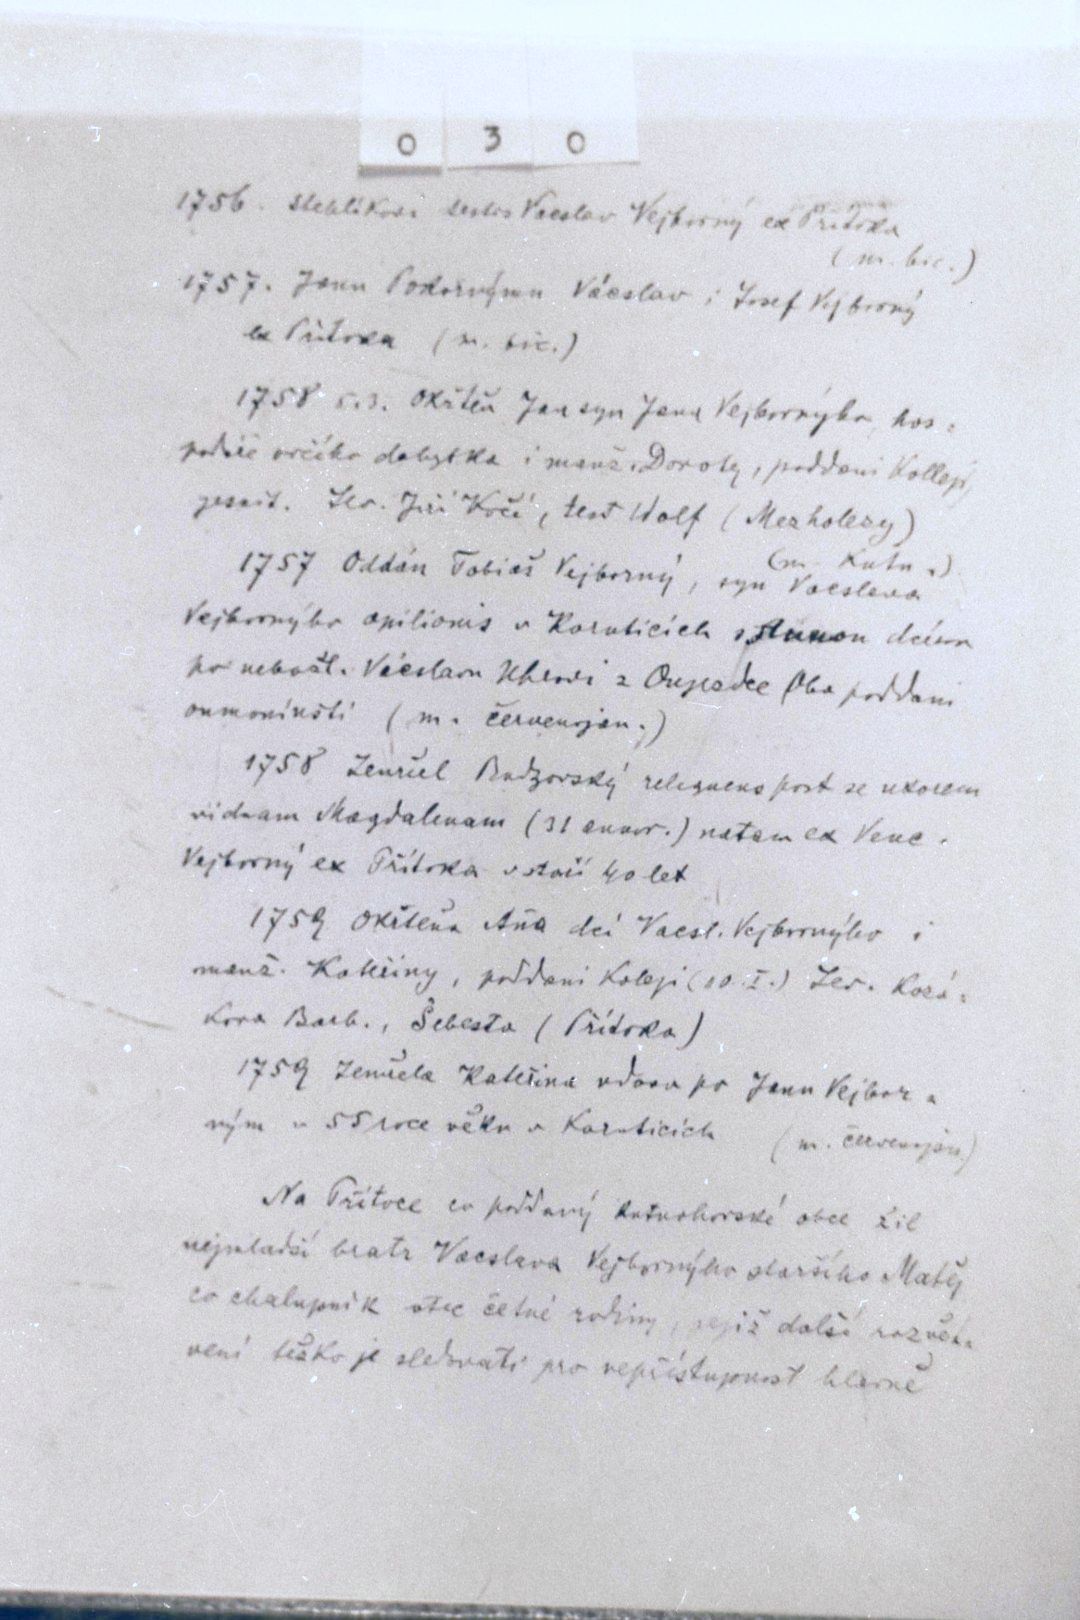 0 3 0
1756. Vacslav Vejborný ex Přítoka
(m. bic.)
1757. Janu Pokornýmu Václav i Josef Vejborný
ex Přítoka (m. bic.)
1758 5.3. Okřtěn Jan syn Jana Vejbornýho, hos-
podáře ovčího dobytka i manž. Doroty, poddaní Kollejí
jesuit. Lev. Jiří Kočí, test Wolf (Mezholezy)
(m. Kutn.)
1757 Oddán Tobiáš Vejborný, syn Vacslava
Vejbornýho opilionis v Karoticích s Annou dcérou
po nebožt. Václavu z Oujezdce Oba poddaní
(m. červenojan.)
1758 Zemřel Budzorský relequens post se uxorem
viduam Magdalenam (31 annor.) natam ex Venc.
Vejborný ex Přítoka v stáří 40 let
1759 Okřtěna Aňa dcí Vacsl. Vejbornýho i
manž. Kateřiny, poddaní Koleji (10. I.) Lev. Kozá-
kova Barb., Šebesta (Přítoka)
1759 Zemřela Kateřina vdova po Janu Vejbor-
ným v 55 roce věku v Karoticích
(m. červenojan.)
Na Přítoce co poddaný kutnohorské obce žil
nejmladší bratr Vacslava Vejbornýho staršího Matěj
co chalupník otec četné rodiny, jejíž další rozvět-
vení těžko je sledovati pro nepřístupnost hlavně